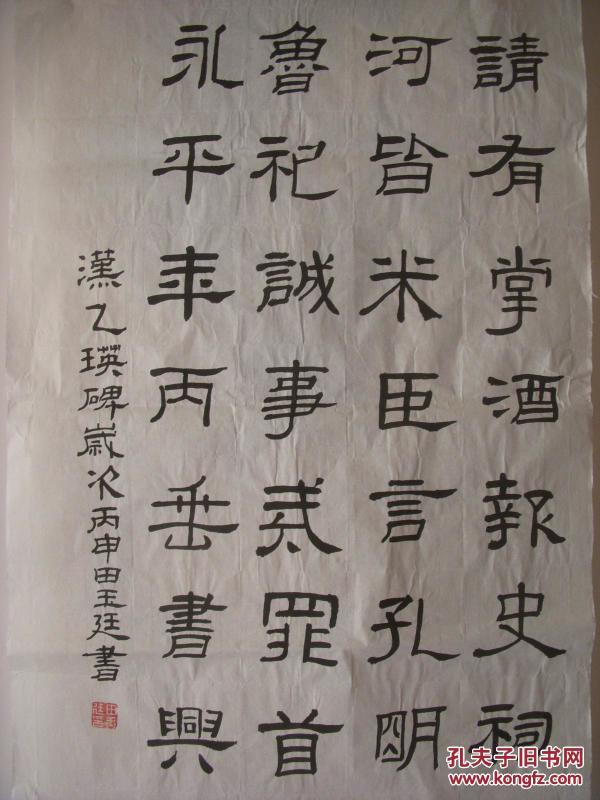 請有掌酒報史祠
河皆米臣言孔明
魯祀誠事罪首
永平年丙垂書興
漢乙瑛碑歲次丙申田玉廷書
孔夫子旧书网
www.kongfz.com